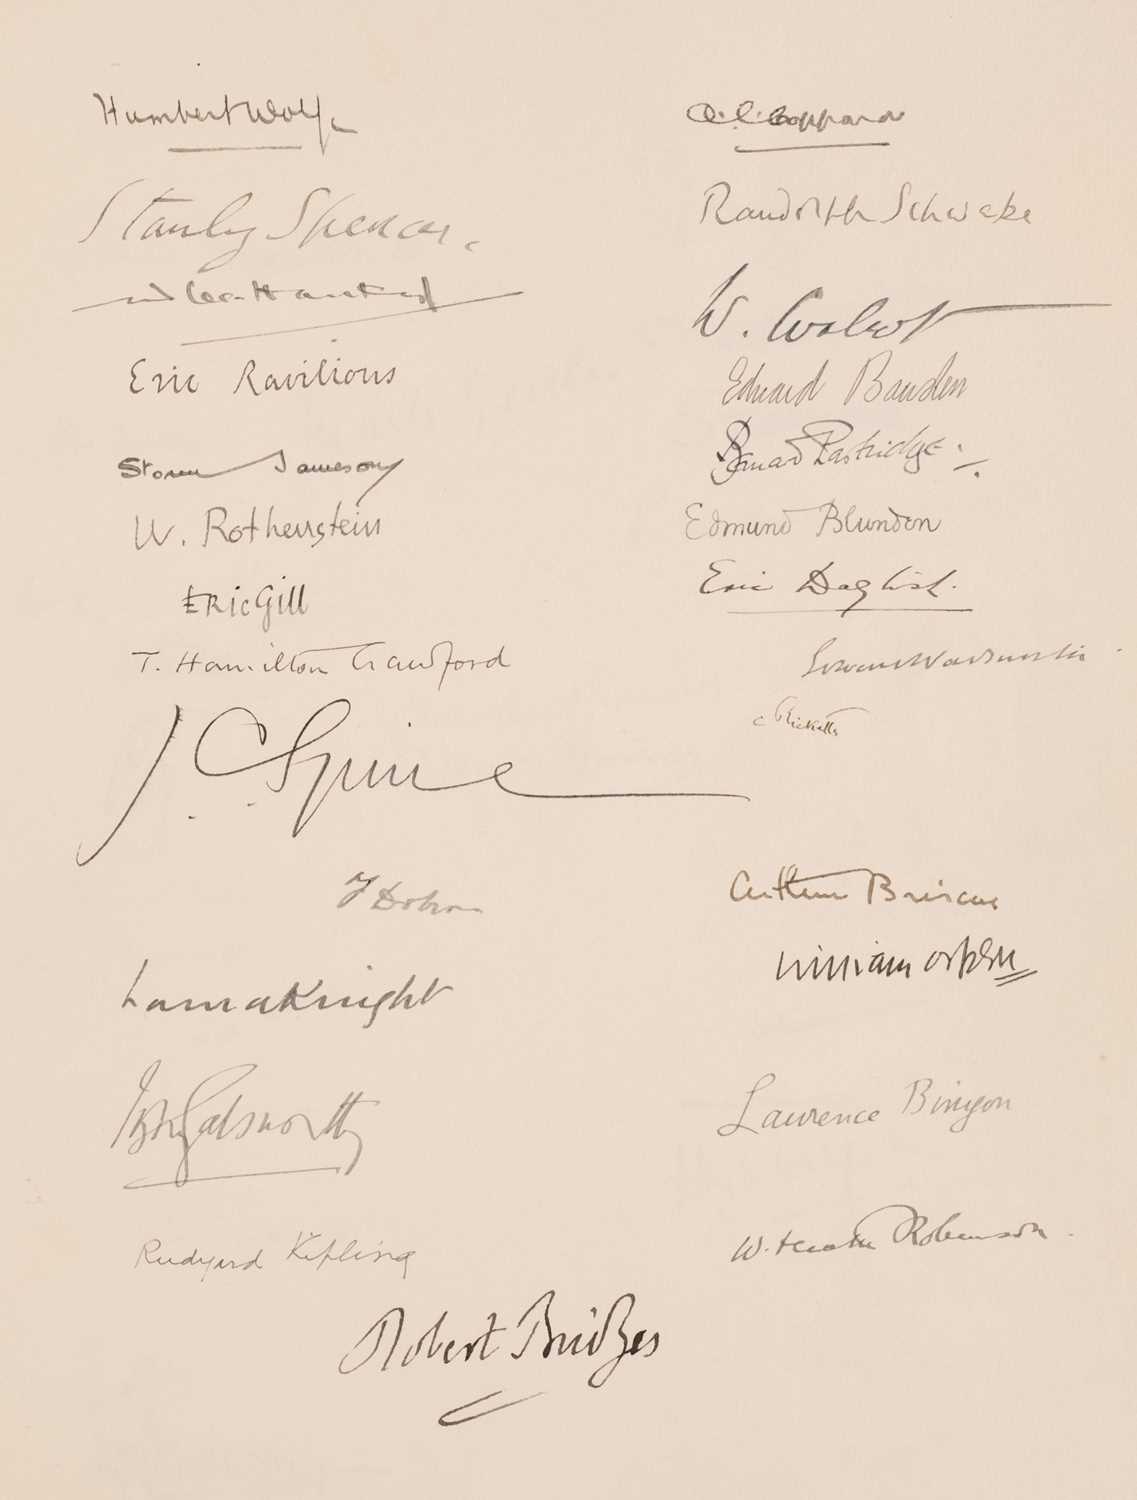 Humbert Wolfe
A. E. Coppard
Stanley Spencer.
Randolph Schwabe
W Lee-Hankey
W. Walcot
Eric Ravilious
Edward Bawden
Bernard Partridge.
Storm Jameson
W. Rothenstein
Edmund Blunden
Eric Gill
Eric Daglish.
T. Hamilton Crawford
Edward Wadsworth
C Ricketts
J. C. Squire
F Dobson
Arthur Briscoe
William Orpen
Laura Knight
John Galsworthy
Laurence Binyon
Rudyard Kipling
W. Heath Robinson.
Robert Bridges